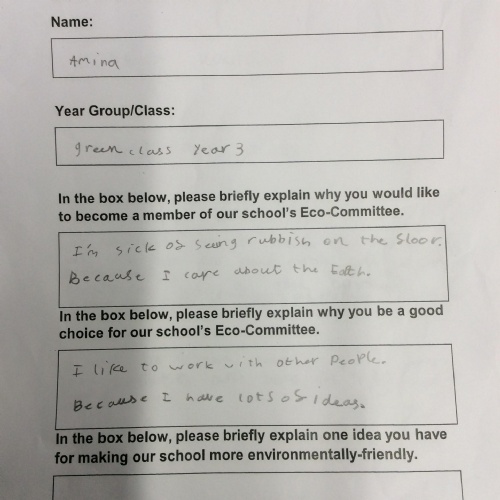 Name:
Amina
Year Group/Class:
green class Year 3
In the box below, please briefly explain why you would like
to become a member of our school's Eco-Committee.
I'm sick of seing rubbish on the floor.
Because I care about the Eath.
In the box below, please briefly explain why you be a good
choice for our school's Eco-Committee.
I like to work with other People.
Because I have lots of ideas.
In the box below, please briefly explain one idea you have
for making our school more environmentally-friendly.